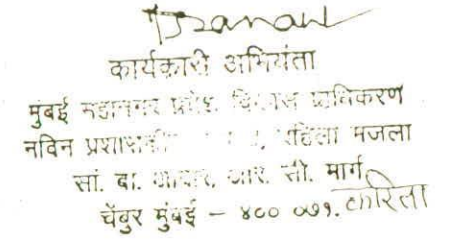 कार्यकारी अभियंता
मुंबई महानगर प्रदेश विकास प्राधिकरण
नविन प्रशासकीय पहिला मजला
सां. बा. आवार, आर. सी. मार्ग,
चेंबुर मुंबई – ४०० ०७१. करिता